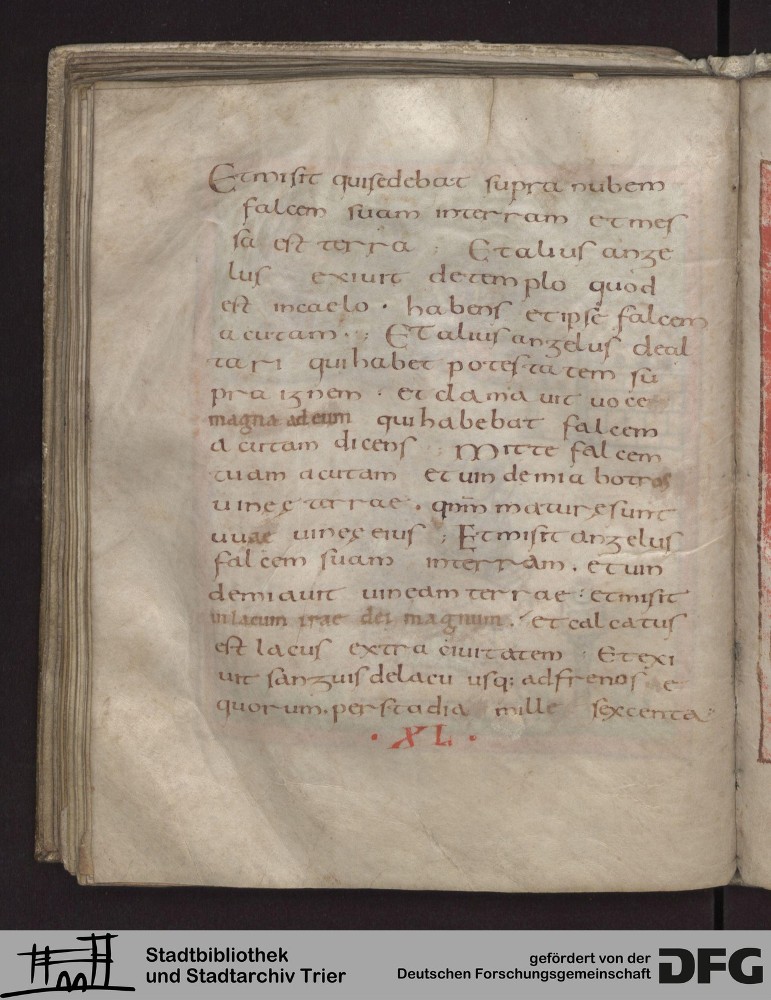 Et misit qui sedebat supra nubem
falcem suam interram et mes
sa est terra ; Et alius ange
lus exiuit detemplo quod
est incaelo · habens et ipse falcem
acutam · ; Et alius angelus deal
tari qui habet potestatem su
pra ignem · et clamauit uoce
magna adeum qui habebat falcem
acutam dicens ; Mitte falcem
tuam acutam et uindemia botros
uineę terrae · qnm maturę sunt
uuae uineę eius ; Et misit angelus
falcem suam interram · et uin
demiauit uineam terrae : et misit
inlacum irae dei magnum · et calcatus
est lacus extra ciuitatem · Et exi
uit sanguis delacu usq; adfrenos e
quorum · per stadia mille sexcenta ;
· XL ·
Stadtbibliothek
und Stadtarchiv Trier
gefördert von der
Deutschen Forschungsgemeinschaft
DFG